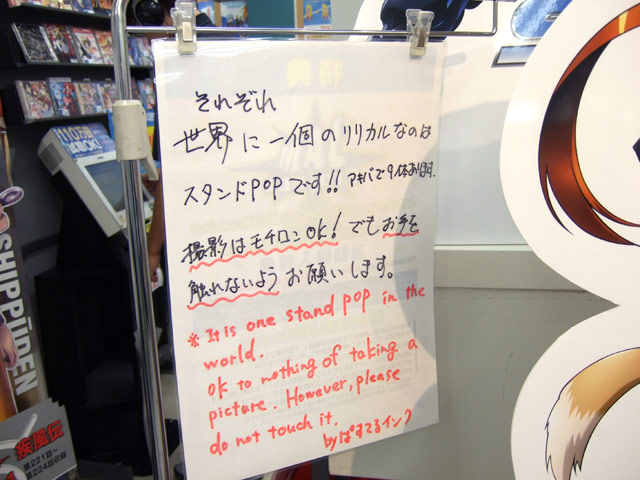 それぞれ
世界に一個のリリカルなのは
スタンドPOPです!! アキバで9体あります.
撮影はモチロンOK! でもお手を
触れないようお願いします。
※It is one stand pop in the
world.
ok to nothing of taking a
picture. However, please
do not touch it.
byぱすてるインク
SHIPPŪDEN
疾風伝
第221話~
第224話収録